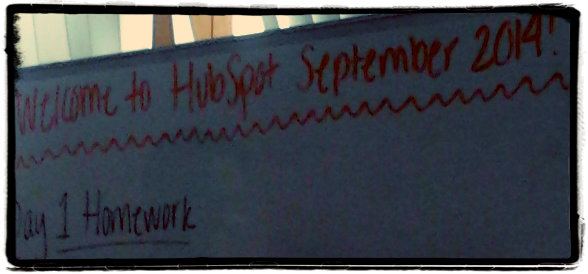 Welcome to HubSpot September 2014!
Day 1 Homework